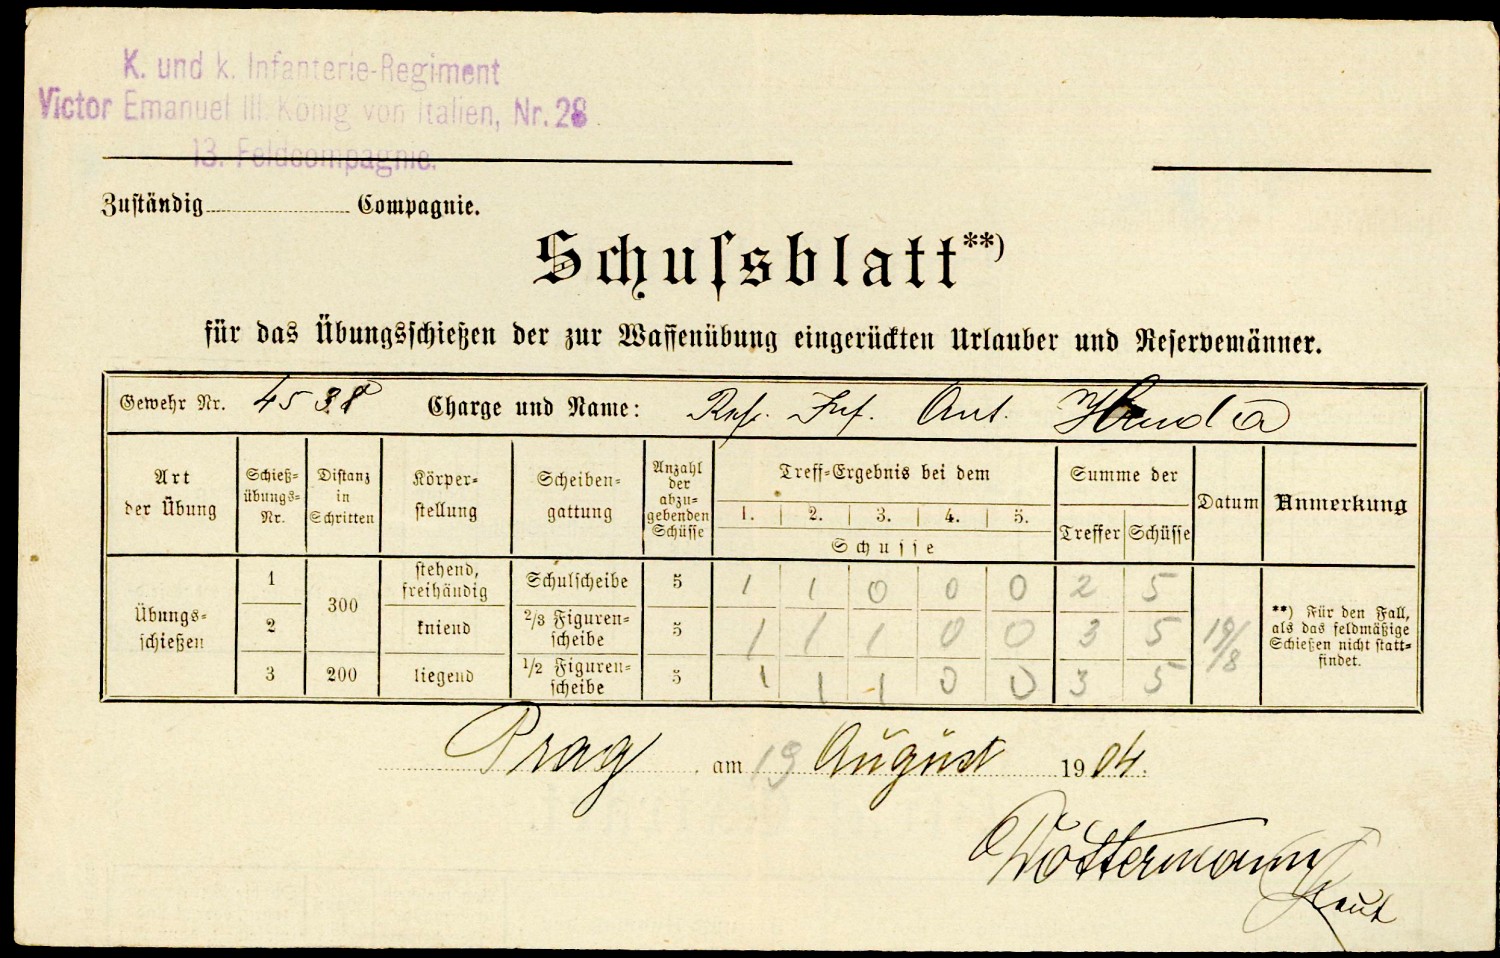 K. und k. Infanterie-Regiment
Victor Emanuel III. König von Italien, Nr. 28.
13. Feldcompagnie.
Zuständig Compagnie.
Schuſsblatt**)
für das Übungsſchießen der zur Waffenübung eingerückten Urlauber und Reſervemänner.
Gewehr Nr. 4538 Charge und Name: Inf. Ant.
Art der Übung Schieß-übungs-Nr. Diſtanz in Schritten Körper-ſtellung Scheiben-gattung Anzahl der abzu-gebenden Schüſſe Treff-Ergebnis bei dem 1. 2. 3. 4. 5. Schuſſe Summe der Treffer Schüſſe Datum Anmerkung
Übungs-ſchießen 1 300 ſtehend, freihändig Schulſcheibe 5 1 1 0 0 0 2 5
2 kniend 2/3 Figuren-ſcheibe 5 1 1 1 0 0 3 5 19/8
3 200 liegend 1/2 Figuren-ſcheibe 5 1 1 1 0 0 3 5
**) Für den Fall,
als das feldmäßige
Schießen nicht ſtatt-
findet.
Prag am 19 August 1904.